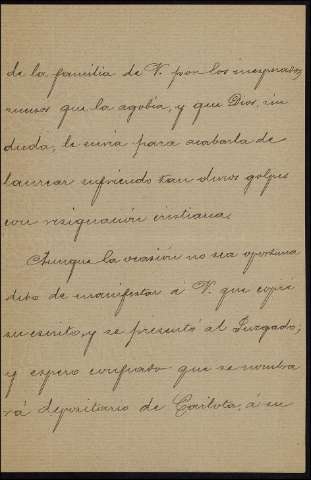 de la familia de V. por los inesperados
sucesos que la agobia, y que Dios, sin
duda, le envia para acabarla de
laurear sufriendo tan duros golpes
con resignación cristiana.
Aunque la ocasión no sea oportuna
debo de manifestar á V. que copié
su escrito, y se presentó al Juzgado;
y espero confiado que se nombra
rá depositario de Carlota, á su